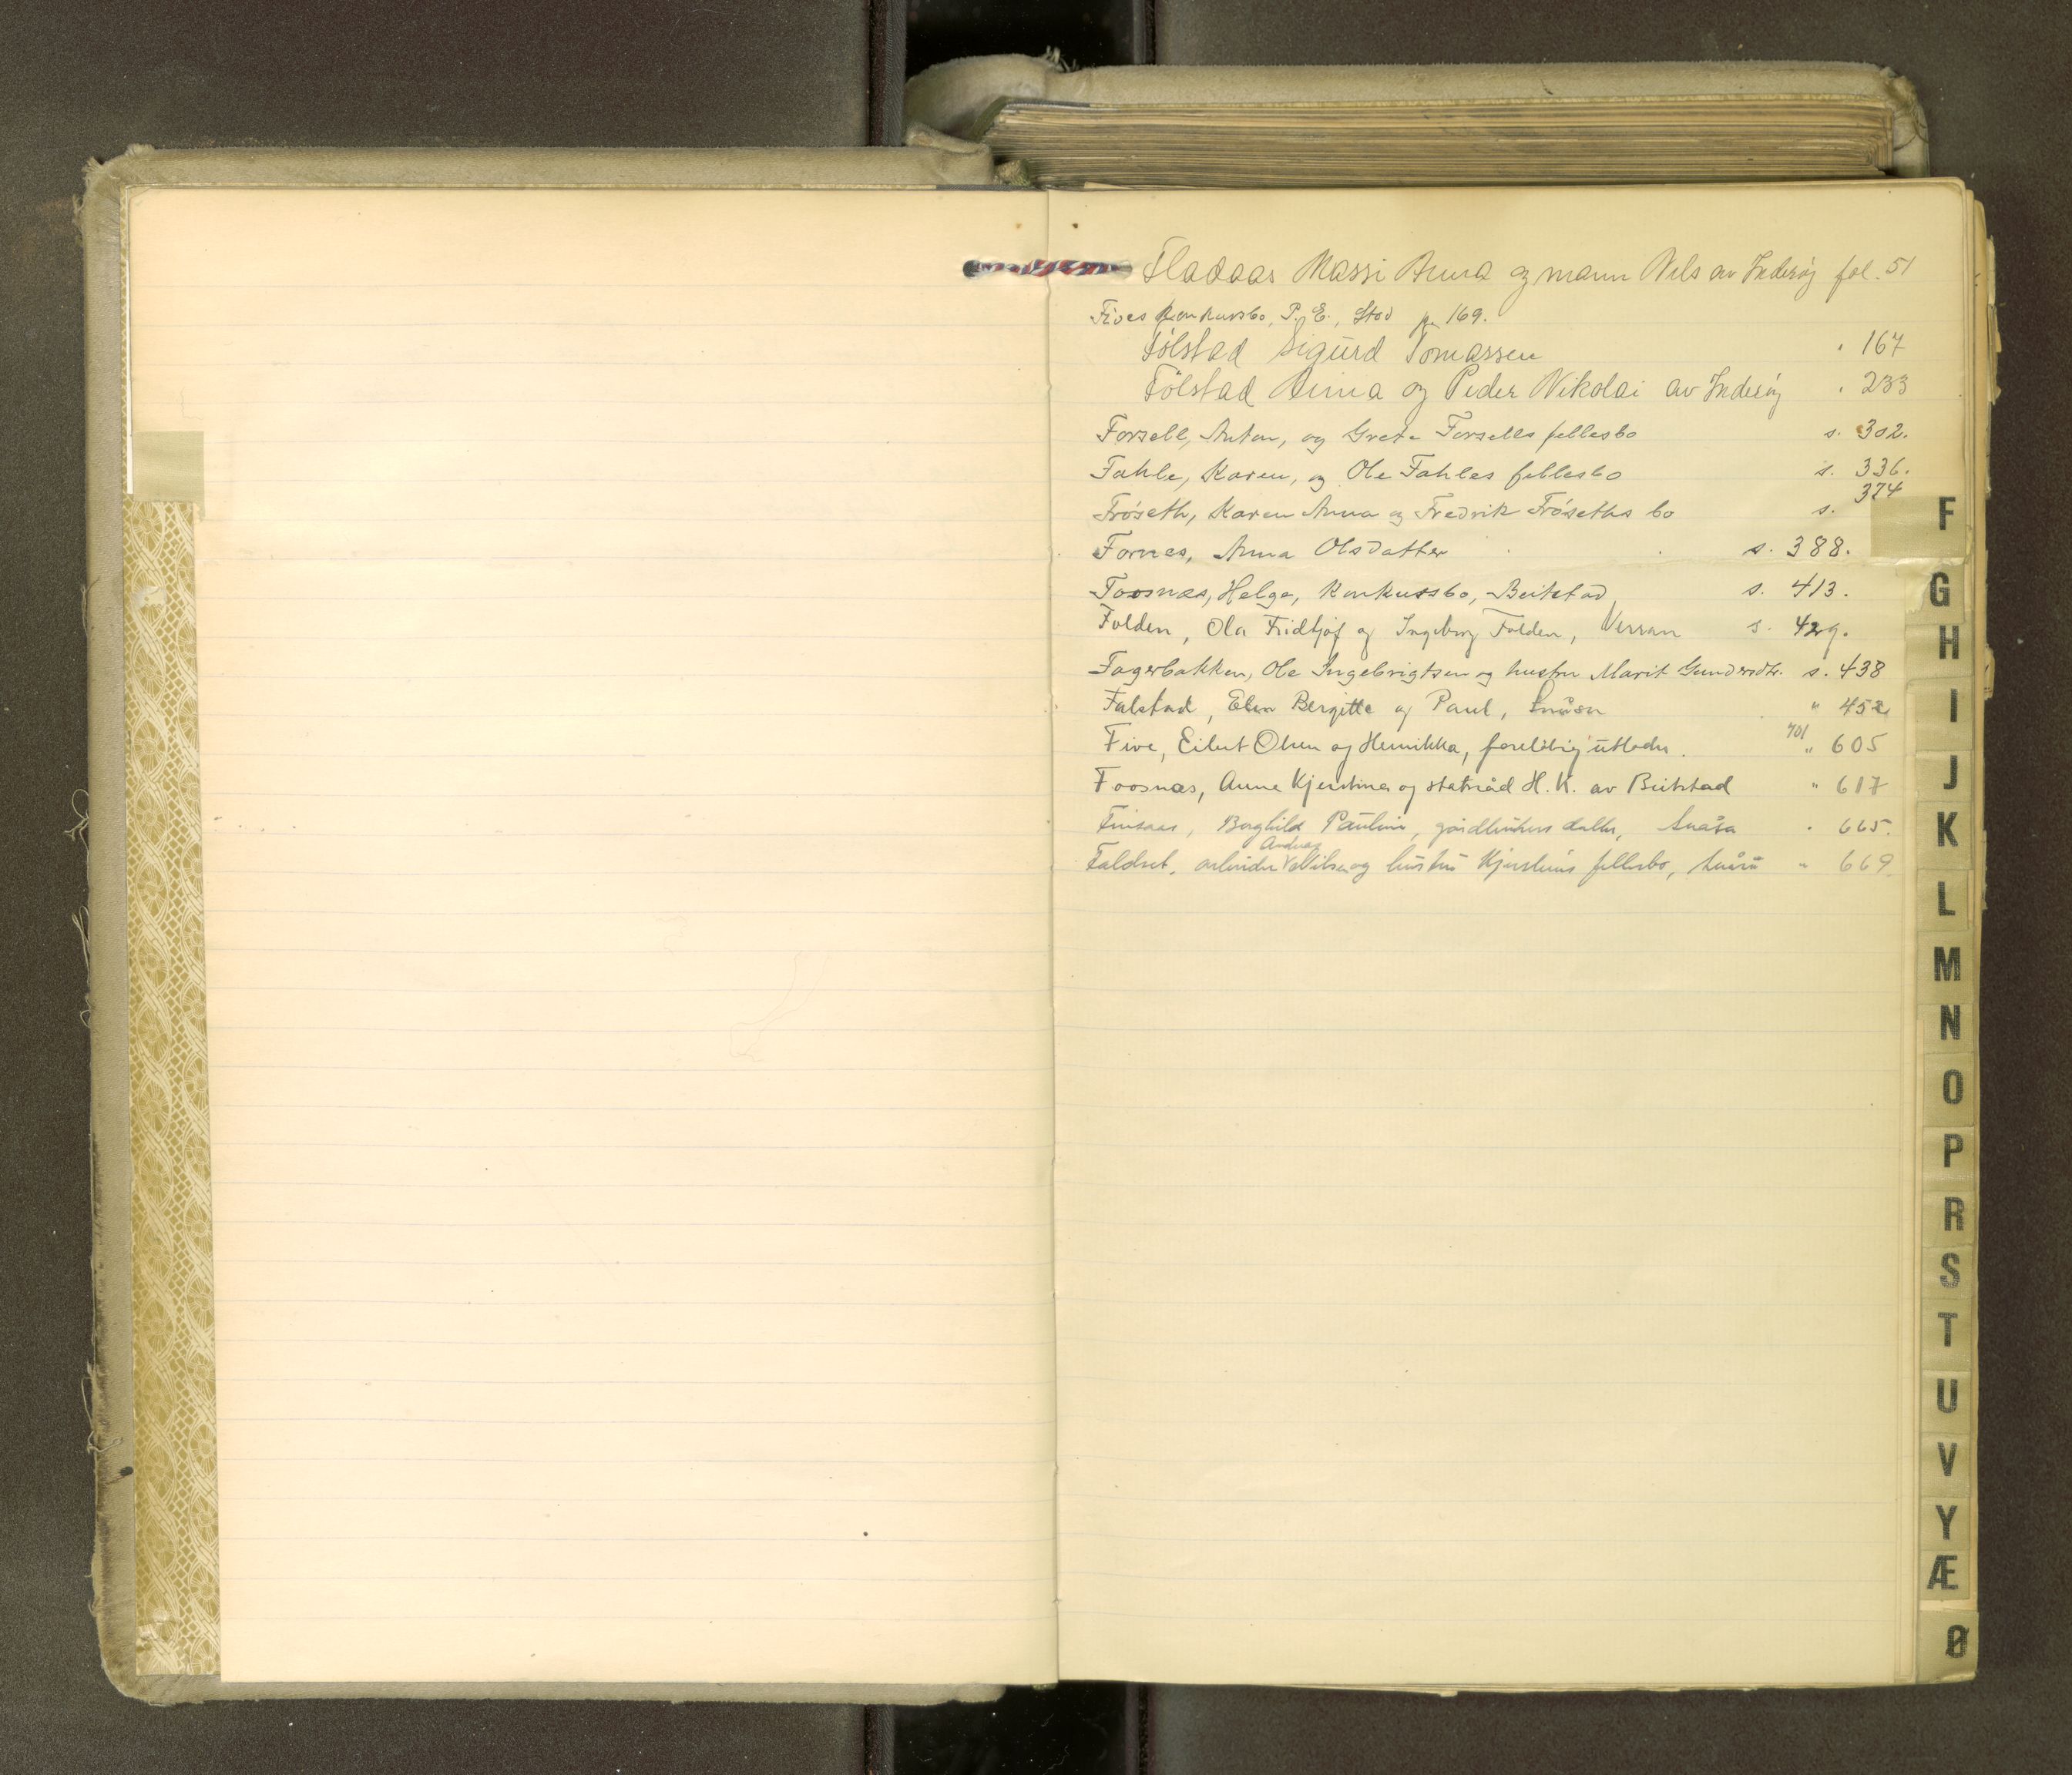 Fladaas Massi Anna og mann Nils av Inderöy fol. 51
Fives konkursbo, P. E., Stod p. 169.
Fölstad Sigurd Tomassen " 167
Fölstad Anna og Peder Nikolai av Inderöy " 233
Forsell, Anton, og Grete Forsells fellesbo s. 302.
Fahle, Karen, og Ole Fahles fellesbo s. 336.
Fröseth, Karen Anna og Fredrik Fröseths bo s. 374
Fornes, Anna Olsdatter s. 388.
Foosnæs, Helge, Konkursbo, Beitstad s. 413.
Folden, Ola Fridtjof og Ingeborg Folden, Verran s. 429.
Fagerbakken, Ole Ingebrigtsen og hustru Marit Gundersdtr. s. 438
Falstad, Elen Bergitte og Paul, Snåsa " 452
Five, Eilert Olsen og Henrikka, foreløbig utlodn. 701 " 605
Foosnæs, Anne Kjerstina og statsråd H. K. av Beitstad " 617
Finsaas, Borghild Pauline, gårdbrukers datter, Snåsa " 665.
Faldset, arbeider Andreas Nilsen og hustru Kjerstines fellesbo, Snåsa " 669.
F
G
H
I
J
K
L
M
N
O
P
R
S
T
U
V
Y
Æ
Ø